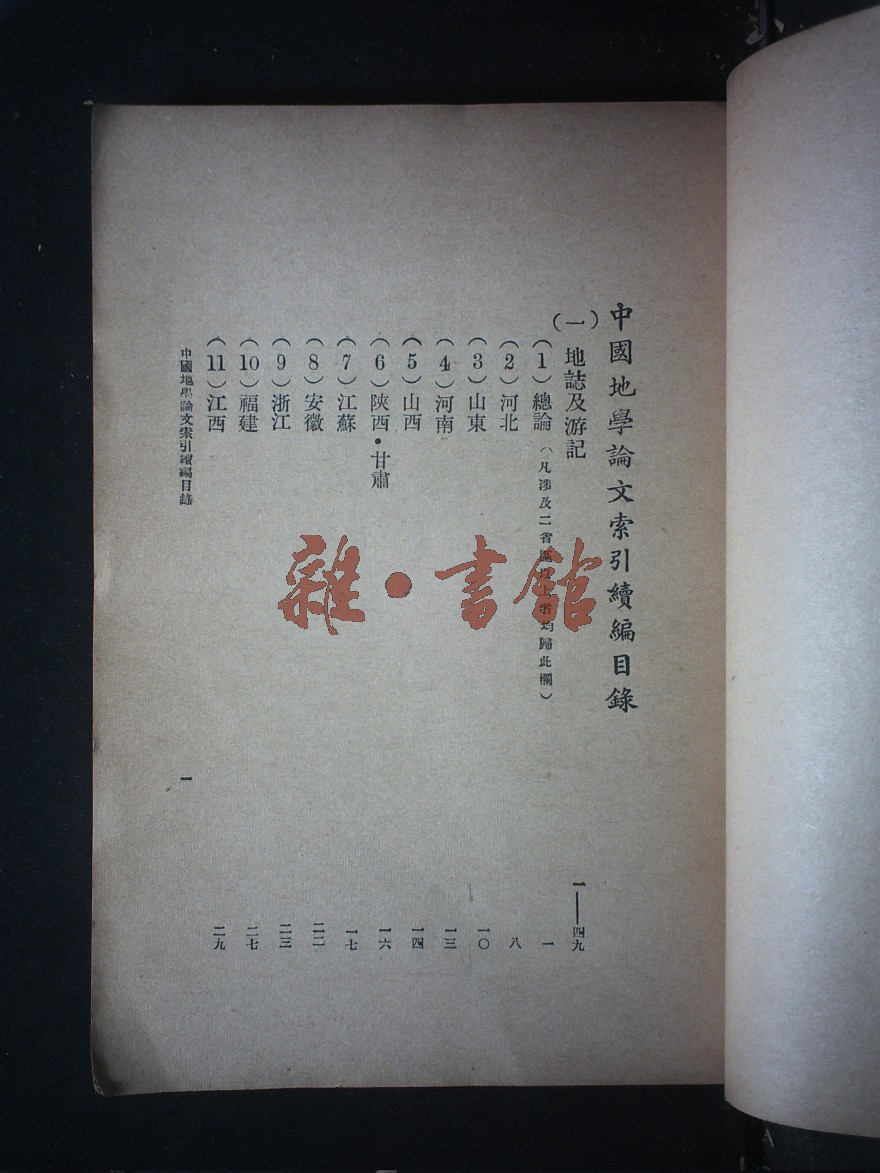 中國地學論文索引續編目錄
(一) 地誌及游記 一——四九
(1) 總論 (凡涉及二省區以上者均歸此欄) 一
(2) 河北 八
(3) 山東 一〇
(4) 河南 一三
(5) 山西 一四
(6) 陝西·甘肅 一六
(7) 江蘇 一七
(8) 安徽 二二
(9) 浙江 二三
(10) 福建 二七
(11) 江西 二九
中國地學論文索引續編目錄 一
雜·書館